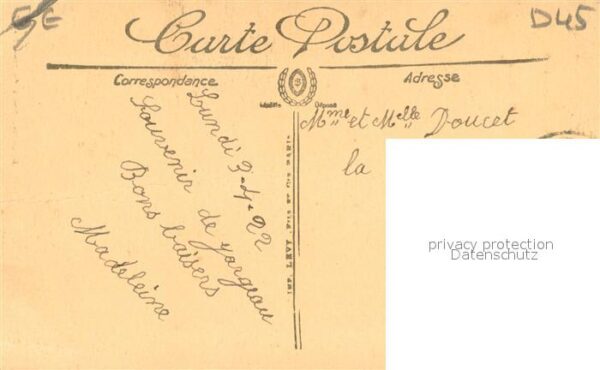 GE
D45
Carte Postale
Correspondance
Adresse
Modèle Déposé
Lundi 3-4-22
Souvenir de Jargeau
Bons baisers
Madeleine
IMP. LEVY FILS ET CIE PARIS
Mme et Melle Doucet
la
privacy protection
Datenschutz